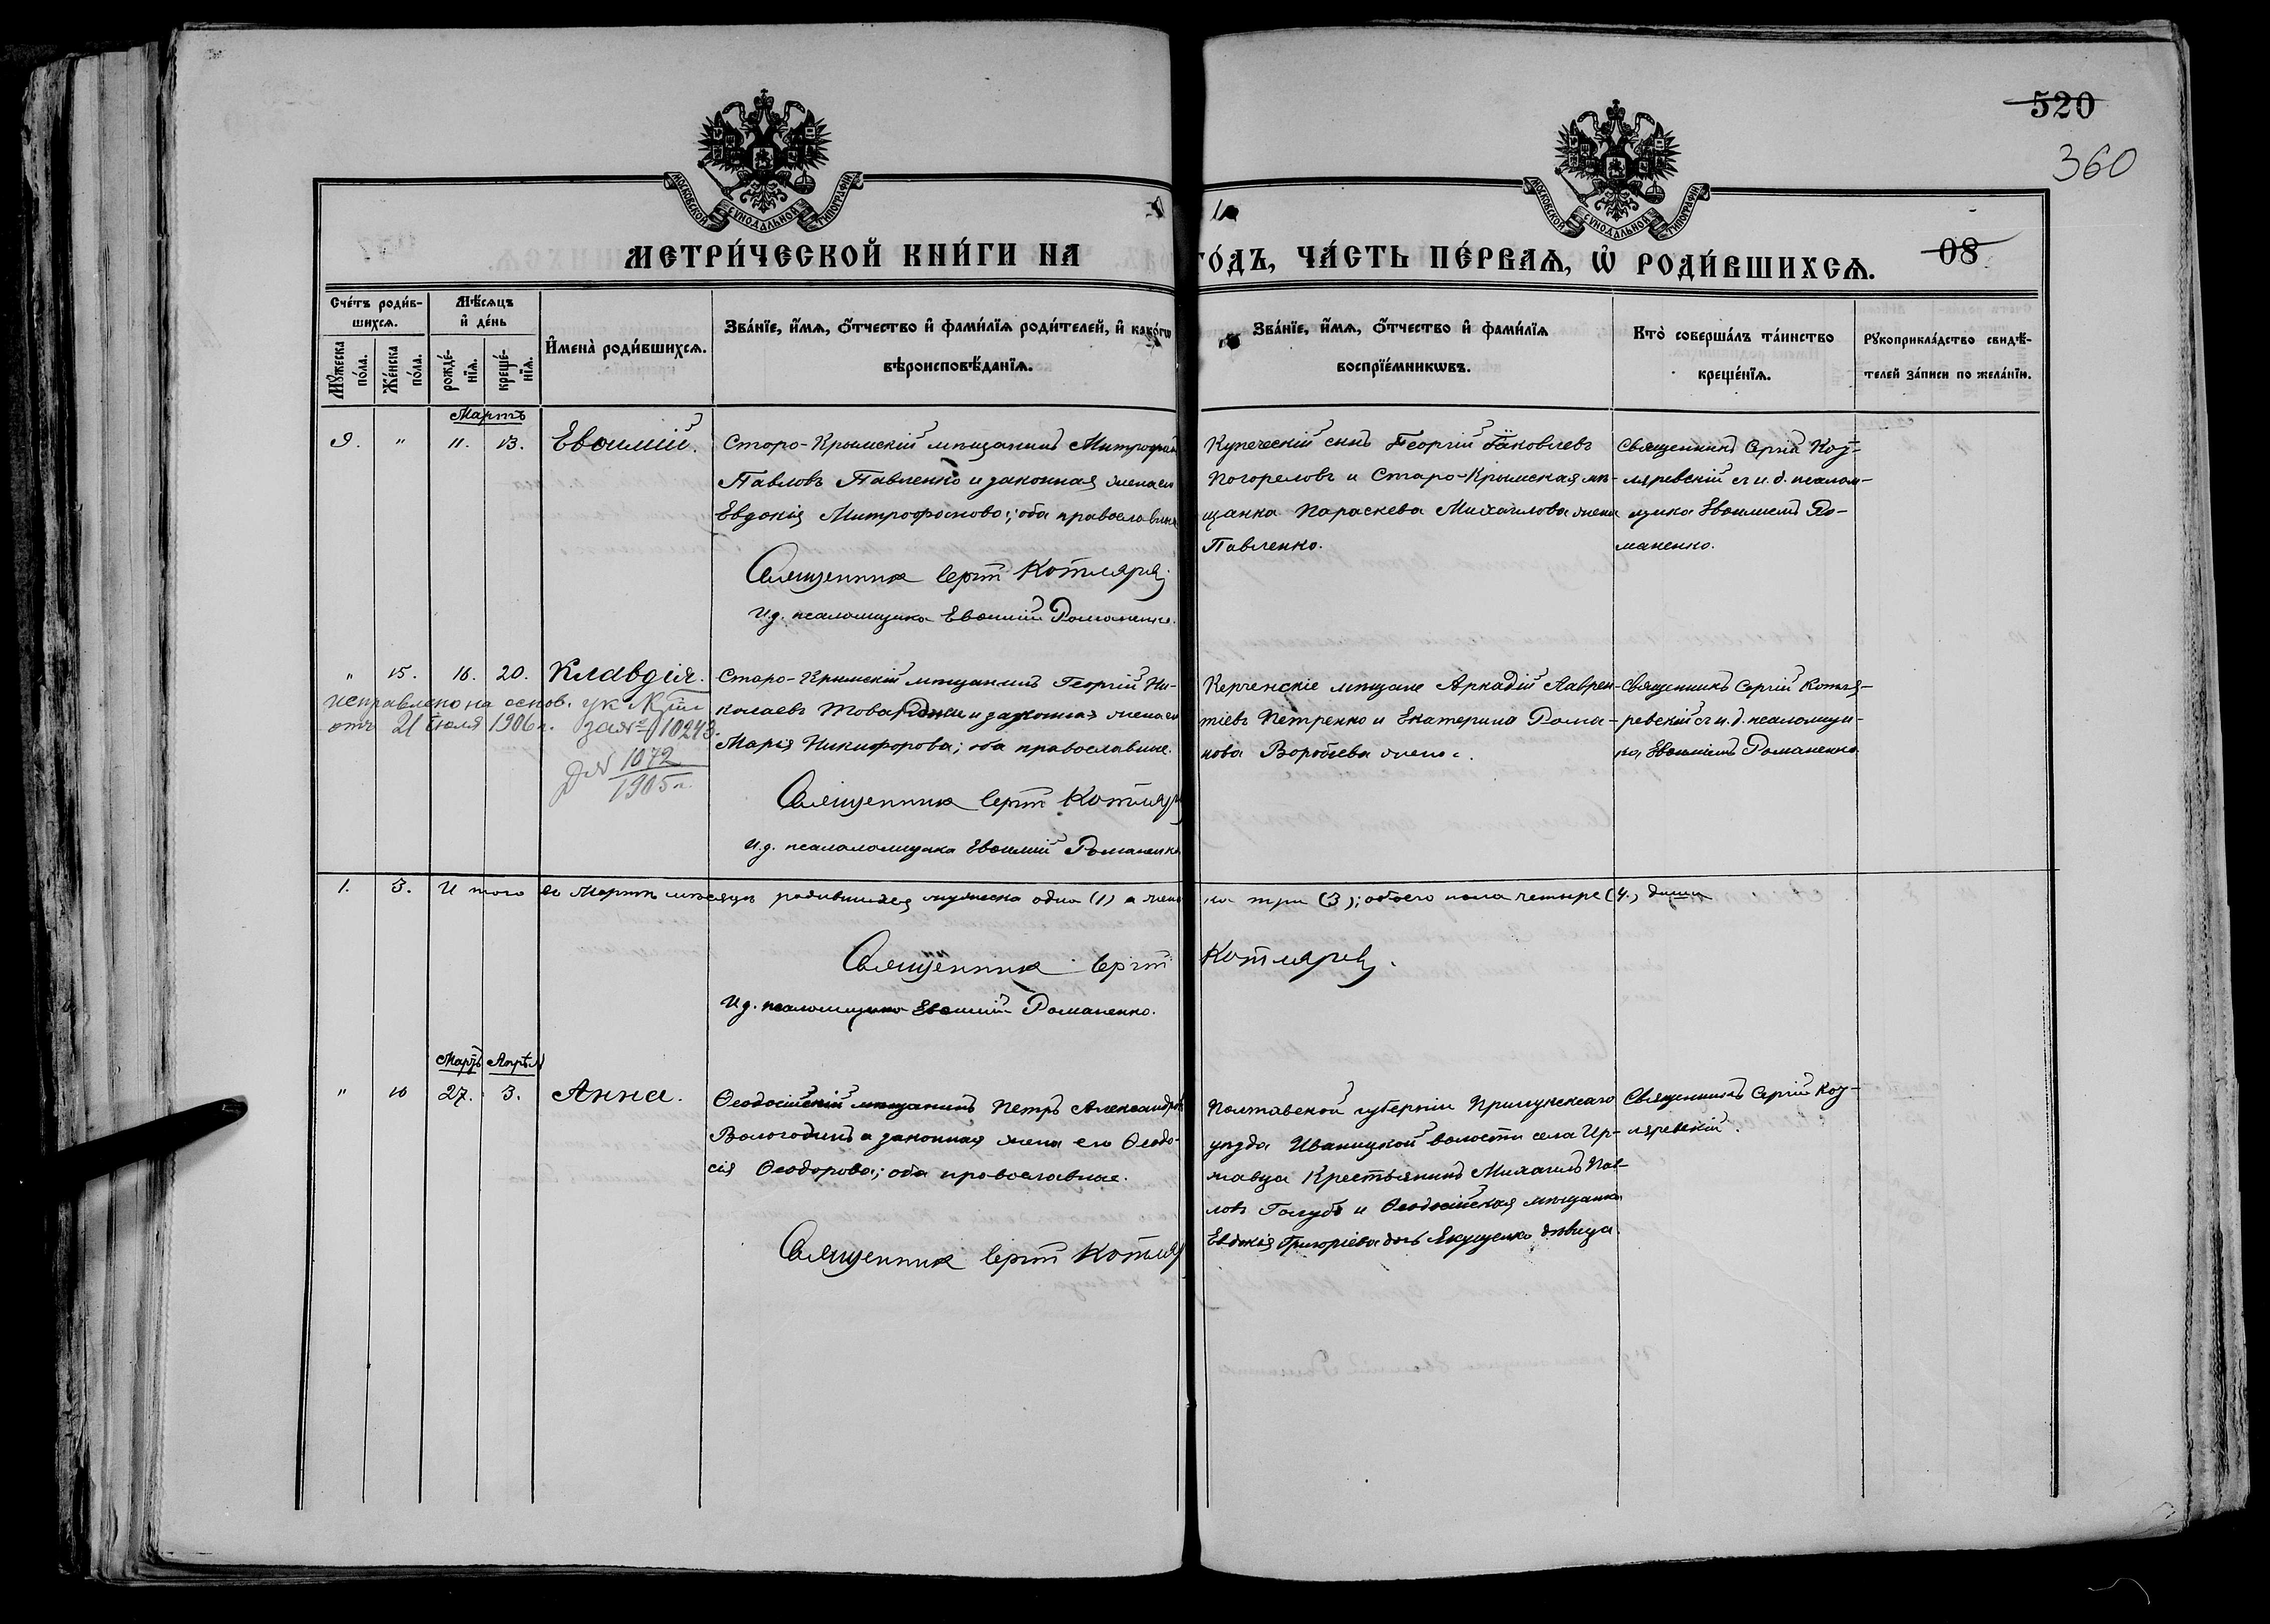 520
360
МОСКОВСКОЙ СѴНОДАЛЬНОЙ ТИПОГРАФІИ
МОСКОВСКОЙ СѴНОДАЛЬНОЙ ТИПОГРАФІИ
МЕТРИ́ЧЕСКОЙ КНИ́ГИ НА
ГО́ДЪ, ЧА́СТЬ ПЕ́РВАѦ, Ѡ РОДИ́ВШИХСѦ.
08
Сче́тъ роди́в-
шихсѧ.
Мѣ́сѧцъ
и҆ де́нь
Мꙋ́жеска
по́ла.
Же́нска
по́ла.
рожде́-
нїѧ.
креще́-
нїѧ.
И҆мена̀ роди́вшихсѧ.
Зва́нїе, и҆́мѧ, ѻ҆́тчество и҆ фами́лїѧ роди́телей, и҆ како́гѡ
вѣроисповѣ́данїѧ.
Зва́нїе, и҆́мѧ, ѻ҆́тчество и҆ фами́лїѧ
воспрїе́мникѡвъ.
Кто̀ соверша́лъ та́инство
креще́нїѧ.
Рꙋкоприкла́дство свидѣ́-
телей за́писи по жела́нїю.
Мартъ
9. " 11. 13. Евѳимій.
Старо-Крымскій мѣщанинъ Митрофан
Павловъ Павленко и законная жена ег
Евдокія Митрофанова; оба православны
Священникъ Сергій Котляревс
И.д. псаломщика Евѳимій Романенко.
Купеческій сынъ Георгій Іаковлевъ
Погореловъ и Старо-Крымская мѣ-
щанка Параскева Михаилова жена
Павленко.
Священникъ Сергій Кот-
ляревскій съ и.д. псалом-
щика Евѳиміемъ Ро-
маненко.
" 15. 16. 20. Клавдія.
исправлено на основ. ук
отъ 21 Іюля 1906 г. за № 10248.
Д № 1072
1905 г.
Старо-Крымскій мѣщанинъ Георгій Ни-
колаевъ и законная жена ег
Марія Никифорова; оба православные.
Священникъ Сергій Котляр
И.д. псаломщика Евѳимій Романенко
Керченскіе мѣщане Аркадій Лаврен-
тіевъ Петренко и Екатерина Рома-
нова Воробіева жена.
Священникъ Сергій Котля-
ревскій съ и.д. псаломщи-
ка Евѳиміемъ Романенко
1. 3. И того въ Мартѣ мѣсяцѣ родившихся мужеска одна (1) а жен ка три (3); обоего пола четыре (4) души
Священникъ Сергій Котляревс.
И.д. псаломщика Евѳимій Романенко.
Мартъ Апрѣль
" 16 27. 3. Анна.
Ѳеодосійскій мѣщанинъ Петръ Александров
Вологодинъ и законная жена его Ѳеодо-
сія Ѳеодорова; оба православные.
Священникъ Сергій Котляр
Полтавской губерніи Прилукскаго
уѣзда Иваницкой волости села Ир-
жавца Крестьянинъ Михаилъ Пав-
ловъ Голубъ и Ѳеодосійская мѣщанка
Евдокія Григоріева дочь Якущенко дѣвица.
Священникъ Сергій Кот-
ляревскій.